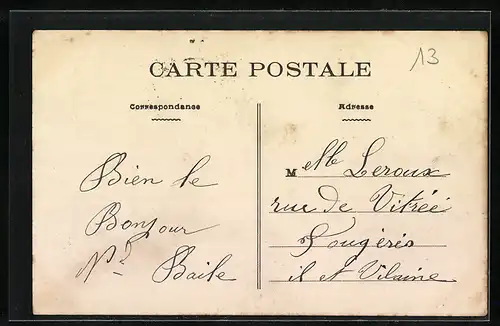 13
CARTE POSTALE
Correspondance
Adresse
Bien le
Bonjour
Baile
Melle Leroux
rue de Vitréé
Fougérés
il et Vilaine